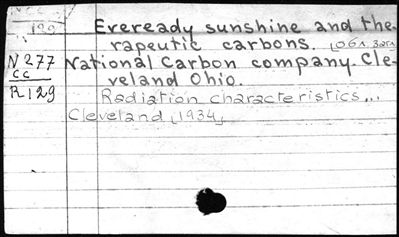 129
Eveready sunshine and the-
rapeutic carbons. [Обл. загл.
N277
National Carbon company. Cle-
cc
veland Ohio.
R129
Radiation characteristics...
Cleveland [1934]